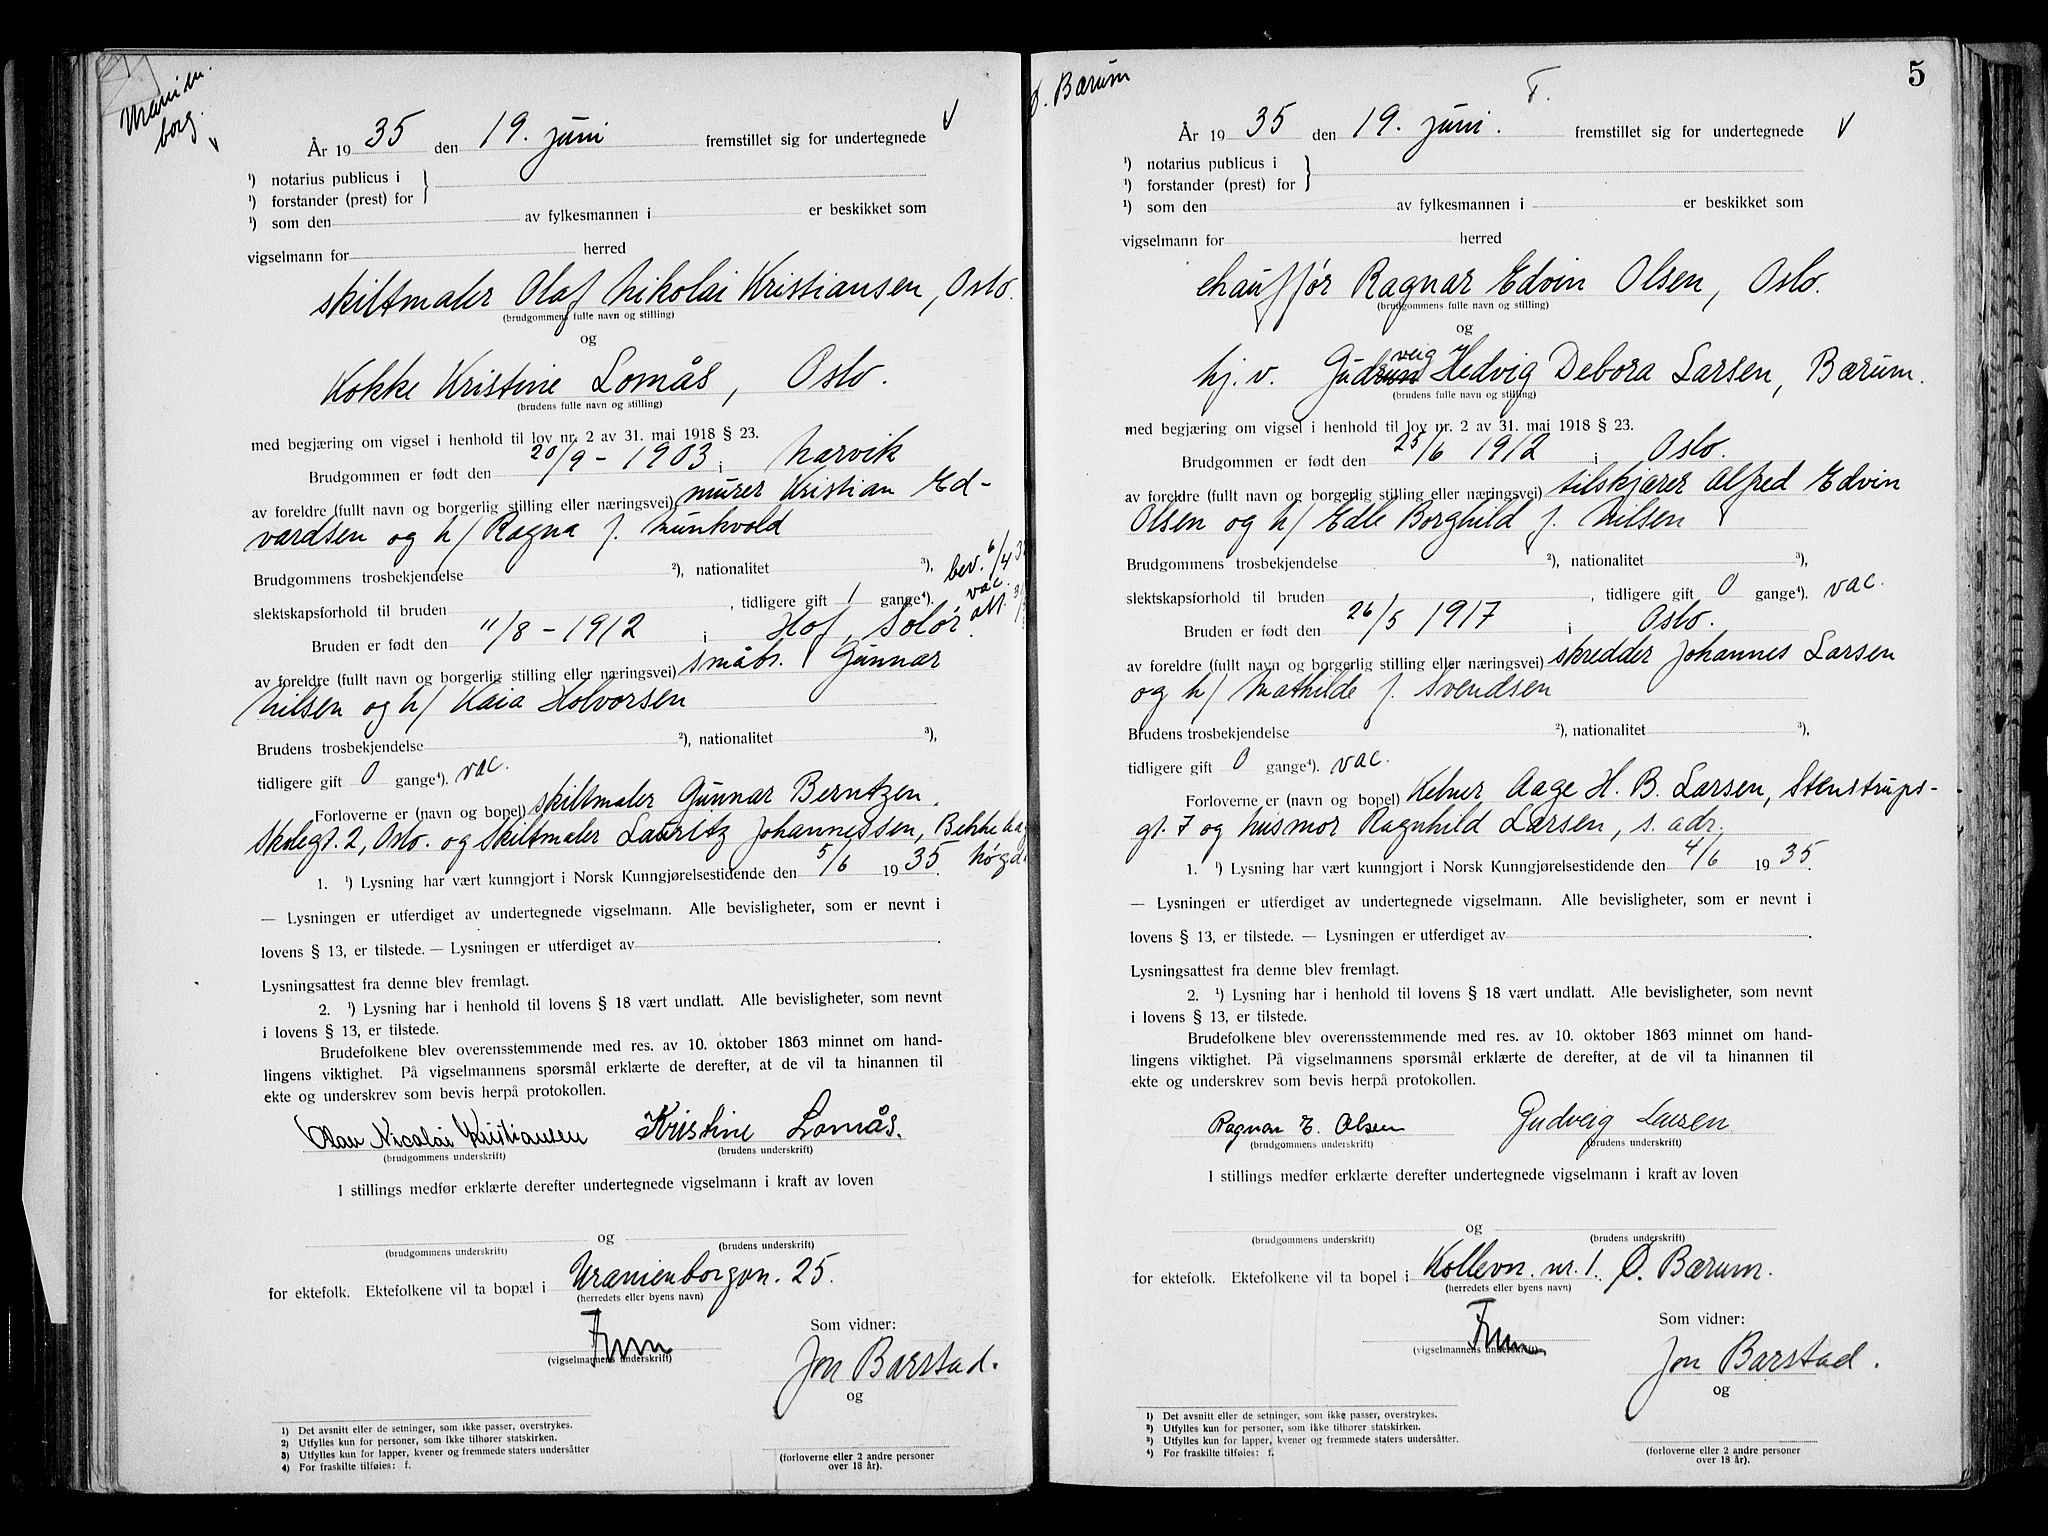 Uranien
borg.
År 1935 den 19. juni fremstillet sig for undertegnede
¹) notarius publicus i
¹) forstander (prest) for
¹) som den av fylkesmannen i er beskikket som
vigselmann for herred
skiltmaler Olaf Nikolai Kristiansen, Oslo.
(brudgommens fulle navn og stilling)
og
Kokke Kristine Lomås, Oslo.
(brudens fulle navn og stilling)
med begjæring om vigsel i henhold til lov nr. 2 av 31. mai 1918 § 23.
Brudgommen er født den 20/9 - 1903 i Narvik
av foreldre (fullt navn og borgerlig stilling eller næringsvei) murer Kristian Ed-
vardsen og h/ Ragna f. Lunkvold
Brudgommens trosbekjendelse ²), nationalitet ³), bev. 6/4
slektskapsforhold til bruden , tidligere gift 1 gange⁴). vac. att.
Bruden er født den 11/8 - 1912 i Hof, Solør.
av foreldre (fullt navn og borgerlig stilling eller næringsvei) småbr. Gunnar
Nilsen og h/ Kaia Holvorsen
Brudens trosbekjendelse ²), nationalitet ³),
tidligere gift 0 gange⁴). vac.
Forloverne er (navn og bopel) skiltmaler Gunnar Berntzen,
Skolegt. 2, Oslo. og skiltmaler Lauritz Johannessen, Bekkelags
høgd.
1. ¹) Lysning har vært kunngjort i Norsk Kunngjørelsestidende den 5/6 1935.
— Lysningen er utferdiget av undertegnede vigselmann. Alle bevisligheter, som er nevnt i
lovens § 13, er tilstede. — Lysningen er utferdiget av .
Lysningsattest fra denne blev fremlagt.
2. ¹) Lysning har i henhold til lovens § 18 vært undlatt. Alle bevisligheter, som nevnt
i lovens § 13, er tilstede.
Brudefolkene blev overensstemmende med res. av 10. oktober 1863 minnet om hand-
lingens viktighet. På vigselmannens spørsmål erklærte de derefter, at de vil ta hinannen til
ekte og underskrev som bevis herpå protokollen.
Olav Nicolai Kristiansen Kristine Lomås.
(brudgommens underskrift) (brudens underskrift)
I stillings medfør erklærte derefter undertegnede vigselmann i kraft av loven
og
(brudgommens underskrift) (brudens underskrift)
for ektefolk. Ektefolkene vil ta bopæl i Uranienborgvn. 25.
(herredets eller byens navn)
Som vidner:
(vigselmannens underskrift)
Jon Barstad.
og
¹) Det avsnitt eller de setninger, som ikke passer, overstrykes.
²) Utfylles kun for personer, som ikke tilhører statskirken.
³) Utfylles kun for lapper, kvener og fremmede staters undersåtter
⁴) For fraskilte tilføies: f.
(forloverne eller 2 andre personer
over 18 år).
Ø. Bærum
T.
5
År 1935 den 19. juni. fremstillet sig for undertegnede
¹) notarius publicus i
¹) forstander (prest) for
¹) som den av fylkesmannen i er beskikket som
vigselmann for herred
chauffør Ragnar Edvin Olsen, Oslo.
(brudgommens fulle navn og stilling)
og
veig
hj.v. Gudrun Hedvig Debora Larsen, Bærum.
(brudens fulle navn og stilling)
med begjæring om vigsel i henhold til lov nr. 2 av 31. mai 1918 § 23.
Brudgommen er født den 25/6 1912 i Oslo.
av foreldre (fullt navn og borgerlig stilling eller næringsvei) tilskjærer Alfred Edvin
Olsen og h/ Edle Borghild f. Nilsen
Brudgommens trosbekjendelse ²), nationalitet ³),
slektskapsforhold til bruden , tidligere gift 0 gange⁴). vac.
Bruden er født den 26/5 1917 i Oslo.
av foreldre (fullt navn og borgerlig stilling eller næringsvei) skredder Johannes Larsen
og h/ Mathilde f. Svendsen
Brudens trosbekjendelse ²), nationalitet ³),
tidligere gift 0 gange⁴). vac.
Forloverne er (navn og bopel) Kelner Aage H. B. Larsen, Stenstrups-
gt. 7 og husmor Ragnhild Larsen, s. adr.
1. ¹) Lysning har vært kunngjort i Norsk Kunngjørelsestidende den 4/6 1935.
— Lysningen er utferdiget av undertegnede vigselmann. Alle bevisligheter, som er nevnt i
lovens § 13, er tilstede. — Lysningen er utferdiget av .
Lysningsattest fra denne blev fremlagt.
2. ¹) Lysning har i henhold til lovens § 18 vært undlatt. Alle bevisligheter, som nevnt
i lovens § 13, er tilstede.
Brudefolkene blev overensstemmende med res. av 10. oktober 1863 minnet om hand-
lingens viktighet. På vigselmannens spørsmål erklærte de derefter, at de vil ta hinannen til
ekte og underskrev som bevis herpå protokollen.
Ragnar E. Olsen Gudveig Larsen
(brudgommens underskrift) (brudens underskrift)
I stillings medfør erklærte derefter undertegnede vigselmann i kraft av loven
og
(brudgommens underskrift) (brudens underskrift)
for ektefolk. Ektefolkene vil ta bopel i Kollevn. nr. 1. Ø. Bærum.
(herredets eller byens navn)
Som vidner:
(vigselmannens underskrift)
Jon Barstad.
og
¹) Det avsnitt eller de setninger, som ikke passer, overstrykes.
²) Utfylles kun for personer, som ikke tilhører statskirken.
³) Utfylles kun for lapper, kvener og fremmede staters undersåtter.
⁴) For fraskilte tilføies: f.
(forloverne eller 2 andre personer
over 18 år).